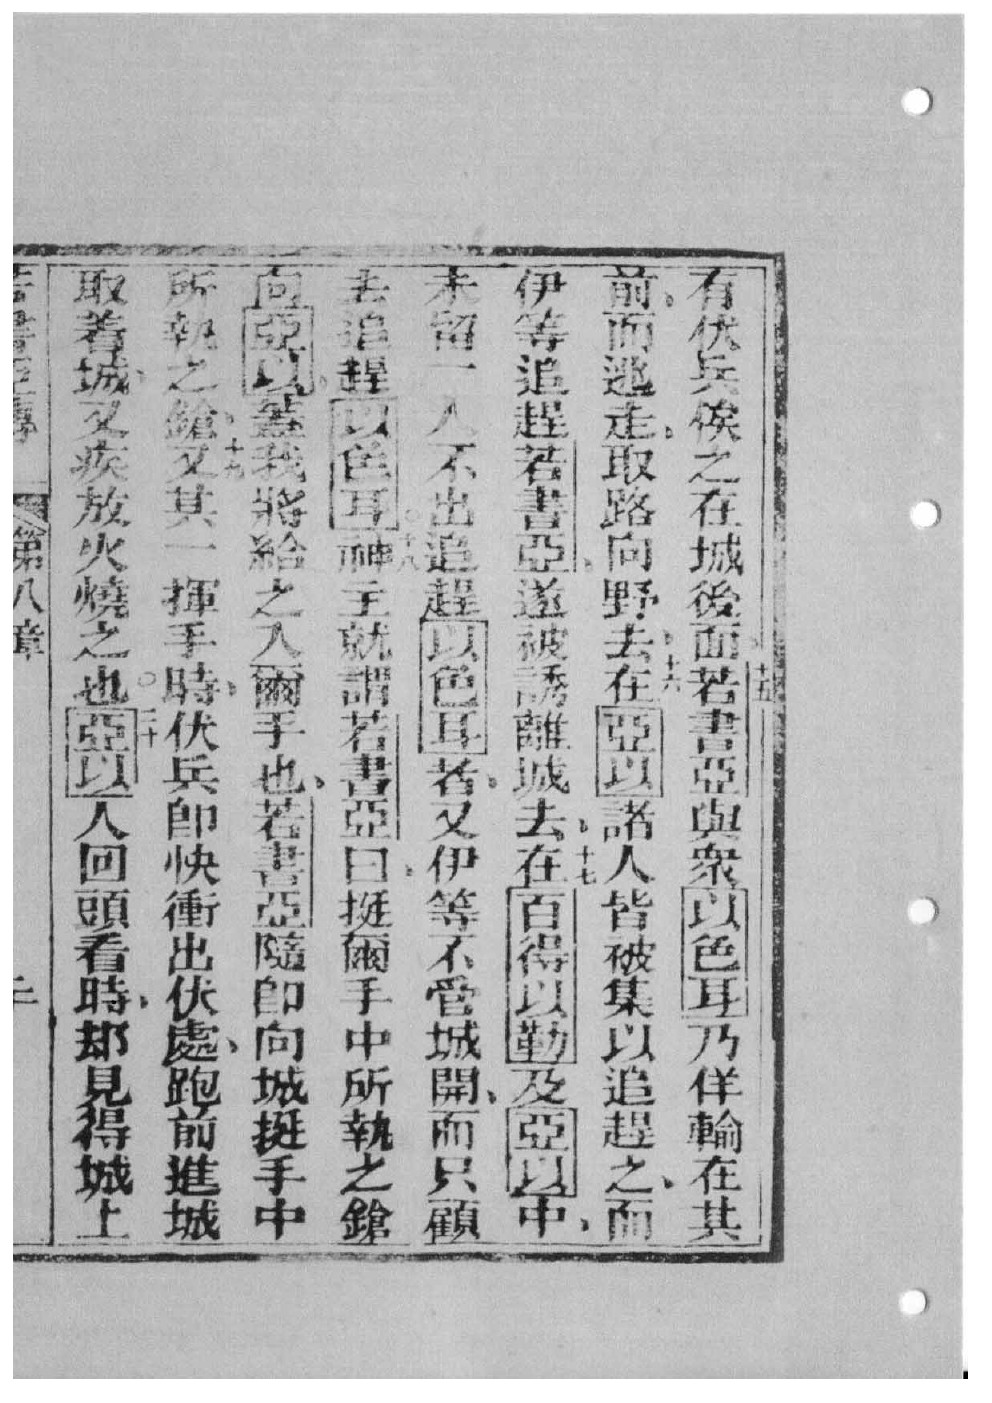 有伏兵俟之在城後面十五若書亞與衆以色耳乃佯輸在其
前而逃走取路向野去十六在亞以諸人皆被集以追趕之而
伊等追趕若書亞遂被誘離城去十七在百得以勒及亞以中
未留一人不出追趕以色耳者又伊等不管城開而只顧
去追趕以色耳十八神主就謂若書亞曰挺爾手中所執之鎗
向亞以蓋我將給之入爾手也若書亞隨卽向城挺手中
所執之鎗十九又其一揮手時伏兵卽快衝出伏處跑前進城
取着城又疾放火燒之也二十亞以人回頭看時却見得城上
若書亞傳 第八章 二